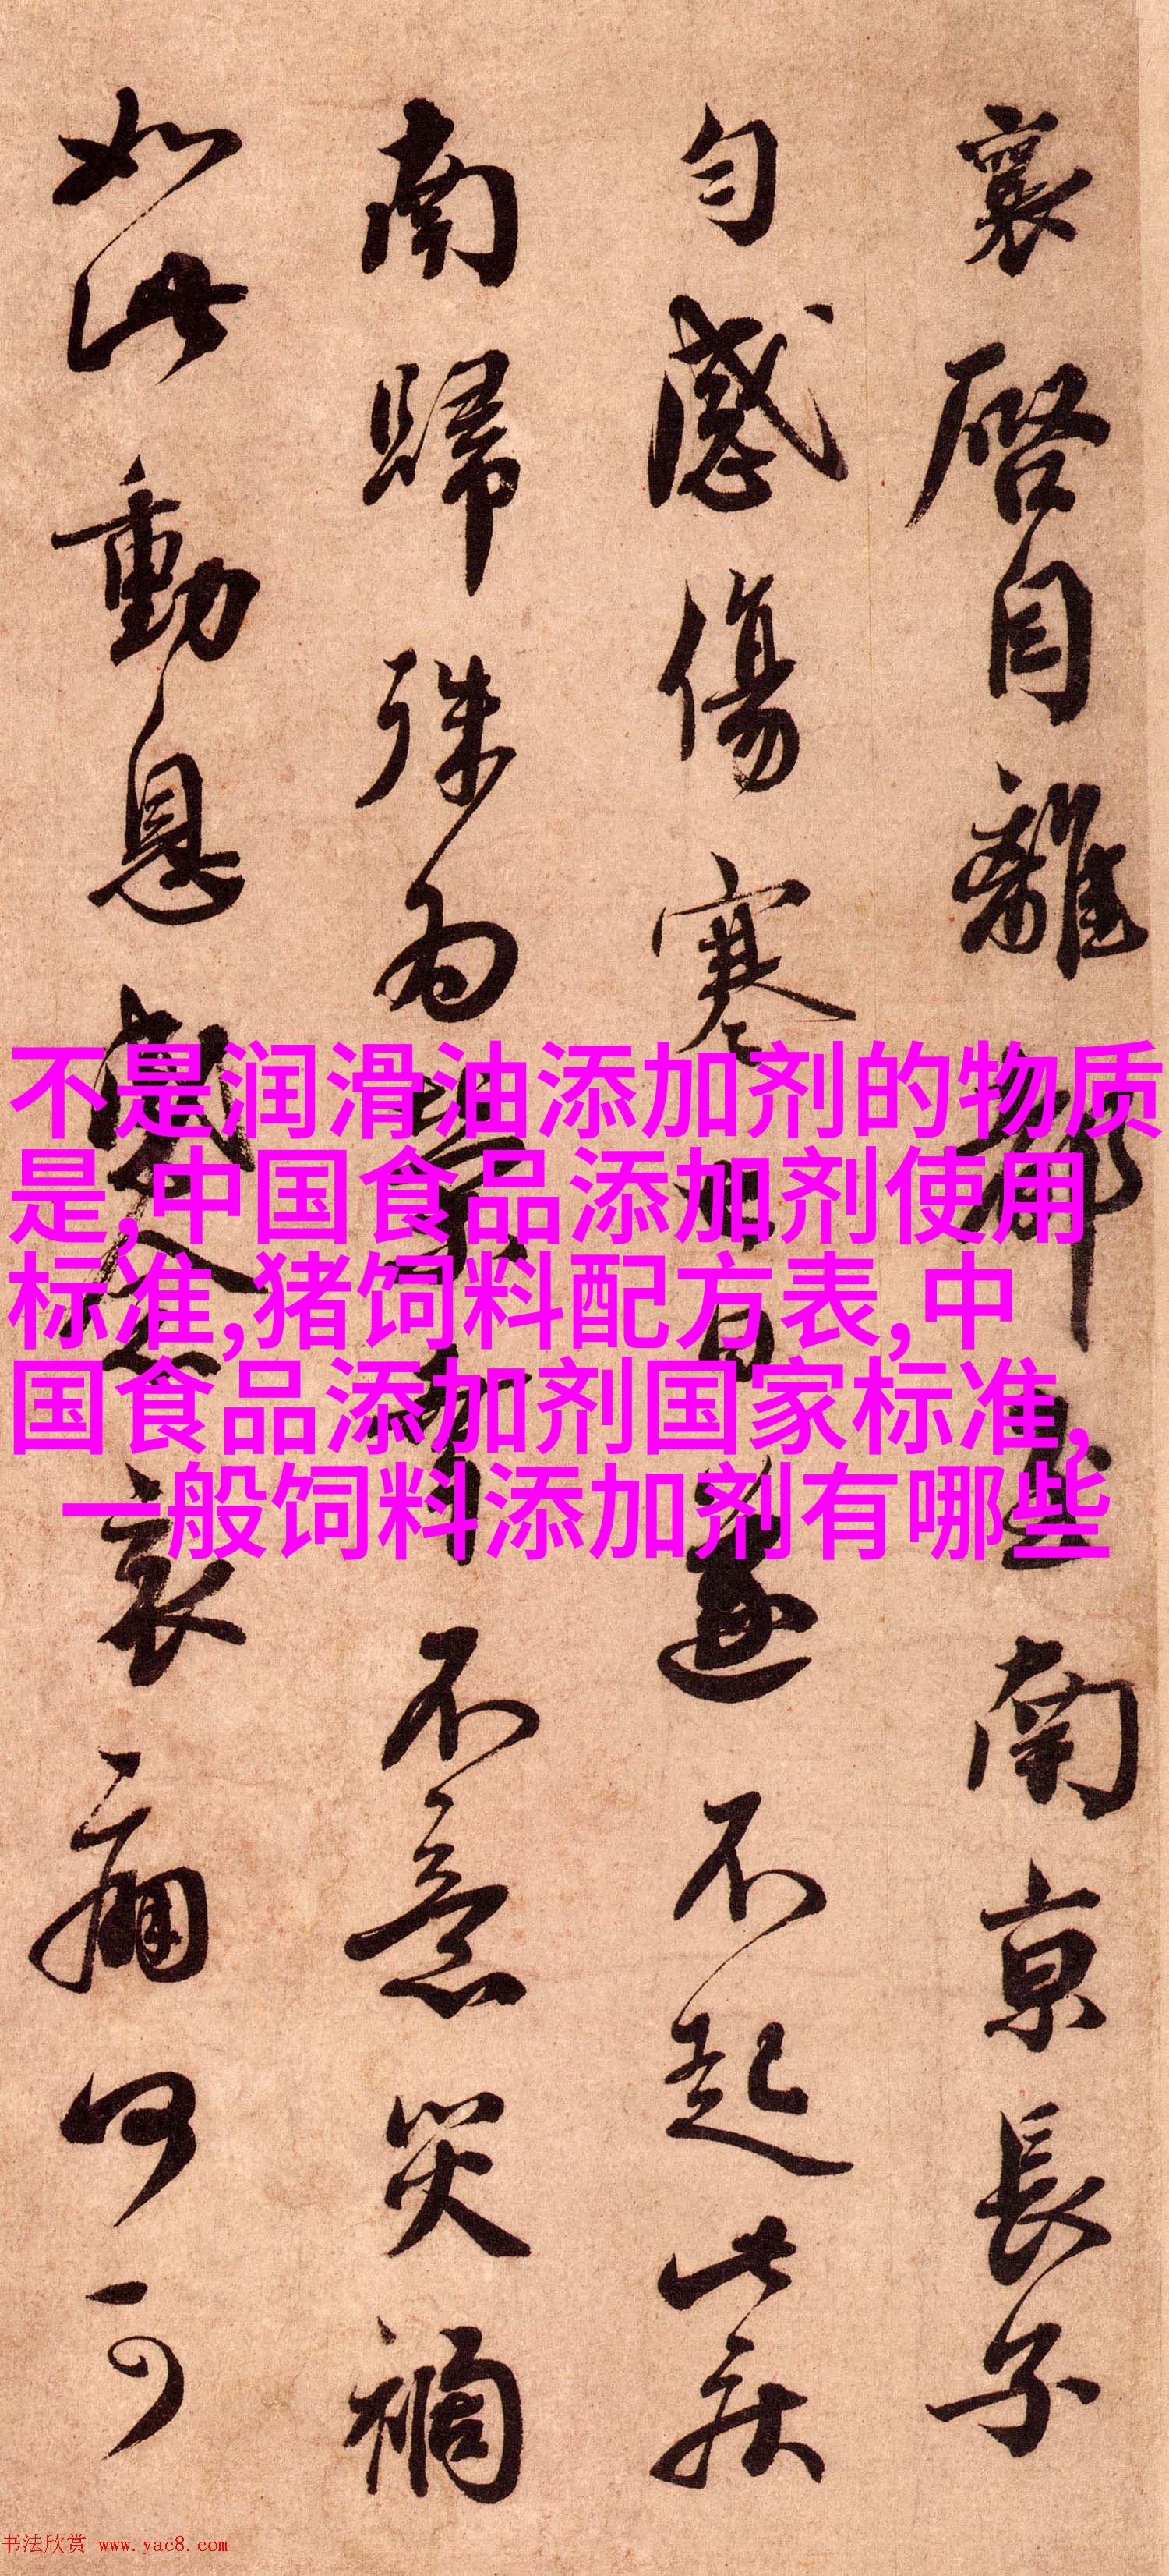 襄啓自離都至南京長子
勻感傷寒七日遂不起此疾
南歸殊為榮幸不意災禍
如此動息感念哀痛何可
不是润滑油添加剂的物质
是,中国食品添加剂使用
标准,猪饲料配方表,中
国食品添加剂国家标准,
一般饲料添加剂有哪些
书法欣赏 www.yac8.com